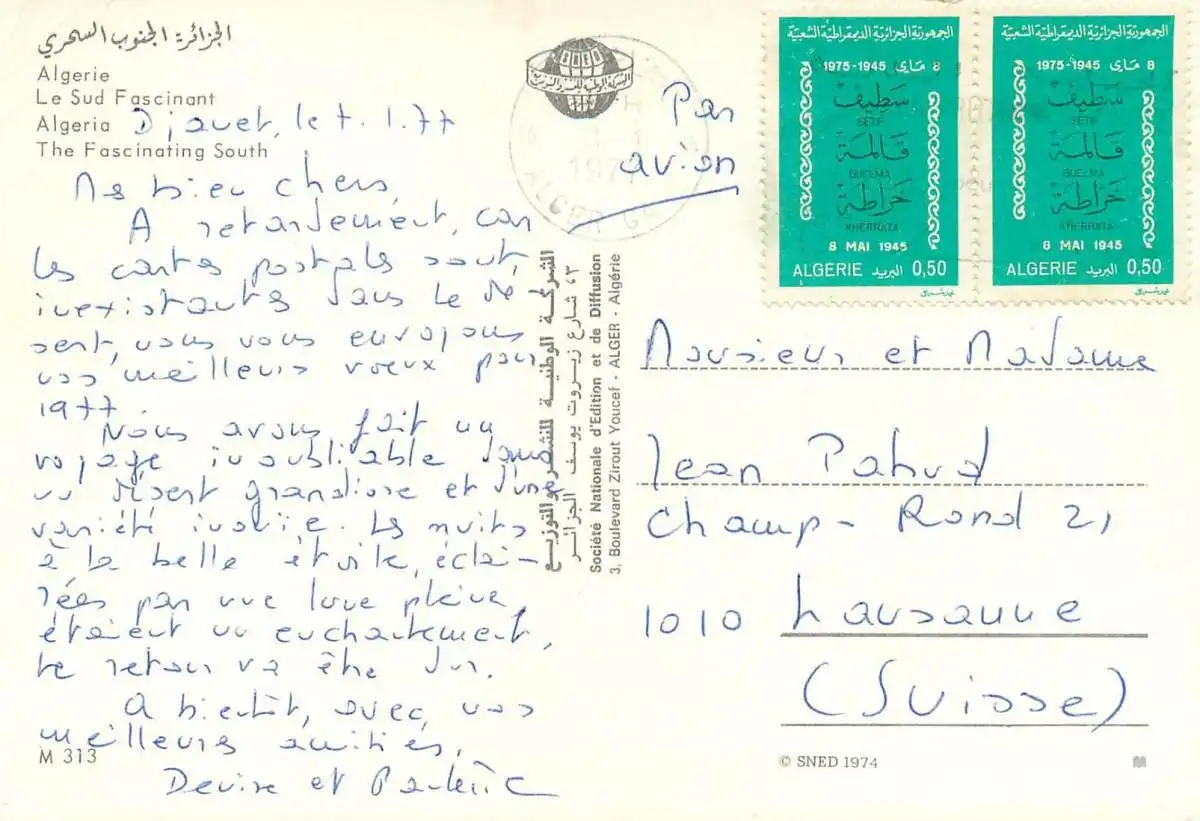 الجزائر: الجنوب السحري
Algerie
Le Sud Fascinant
Algeria
The Fascinating South
Djanet, le 7.1.77
Mes bien chers
A retardement, car
les cartes postales sont
inexistantes dans le dé
sert, nous vous envoyons
nos meilleurs voeux pour
1977.
Nous avons fait un
voyage inoubliable dans
un désert grandiose et d'une
variété inouïe. Les nuits
à la belle étoile, éclai-
rées par une lune pleine,
étaient un enchantement,
Le retour va être dur.
A bientôt, avec nos
meilleures amitiés,
Denise et
M 313
SNED
الشركة الوطنية للنشر والتوزيع
ALGER
Par
avion
الشركة الوطنية للنشر والتوزيع
٣، شارع زيروت يوسف الجزائر
Société Nationale d'Edition et de Diffusion
3, Boulevard Zirout Youcef - ALGER - Algérie
الجمهورية الجزائرية الديمقراطية الشعبية
8 ماي 1945-1975
سطيف
SETIF
قالمة
GUELMA
خراطة
KHERRATA
8 MAI 1945
ALGERIE البريد 0,50
الجمهورية الجزائرية الديمقراطية الشعبية
8 ماي 1945-1975
سطيف
SETIF
قالمة
GUELMA
خراطة
KHERRATA
8 MAI 1945
ALGERIE البريد 0,50
Monsieur et Madame
Jean Pahud
Champ-Rond 21
1010 Lausanne
(Suisse)
© SNED 1974